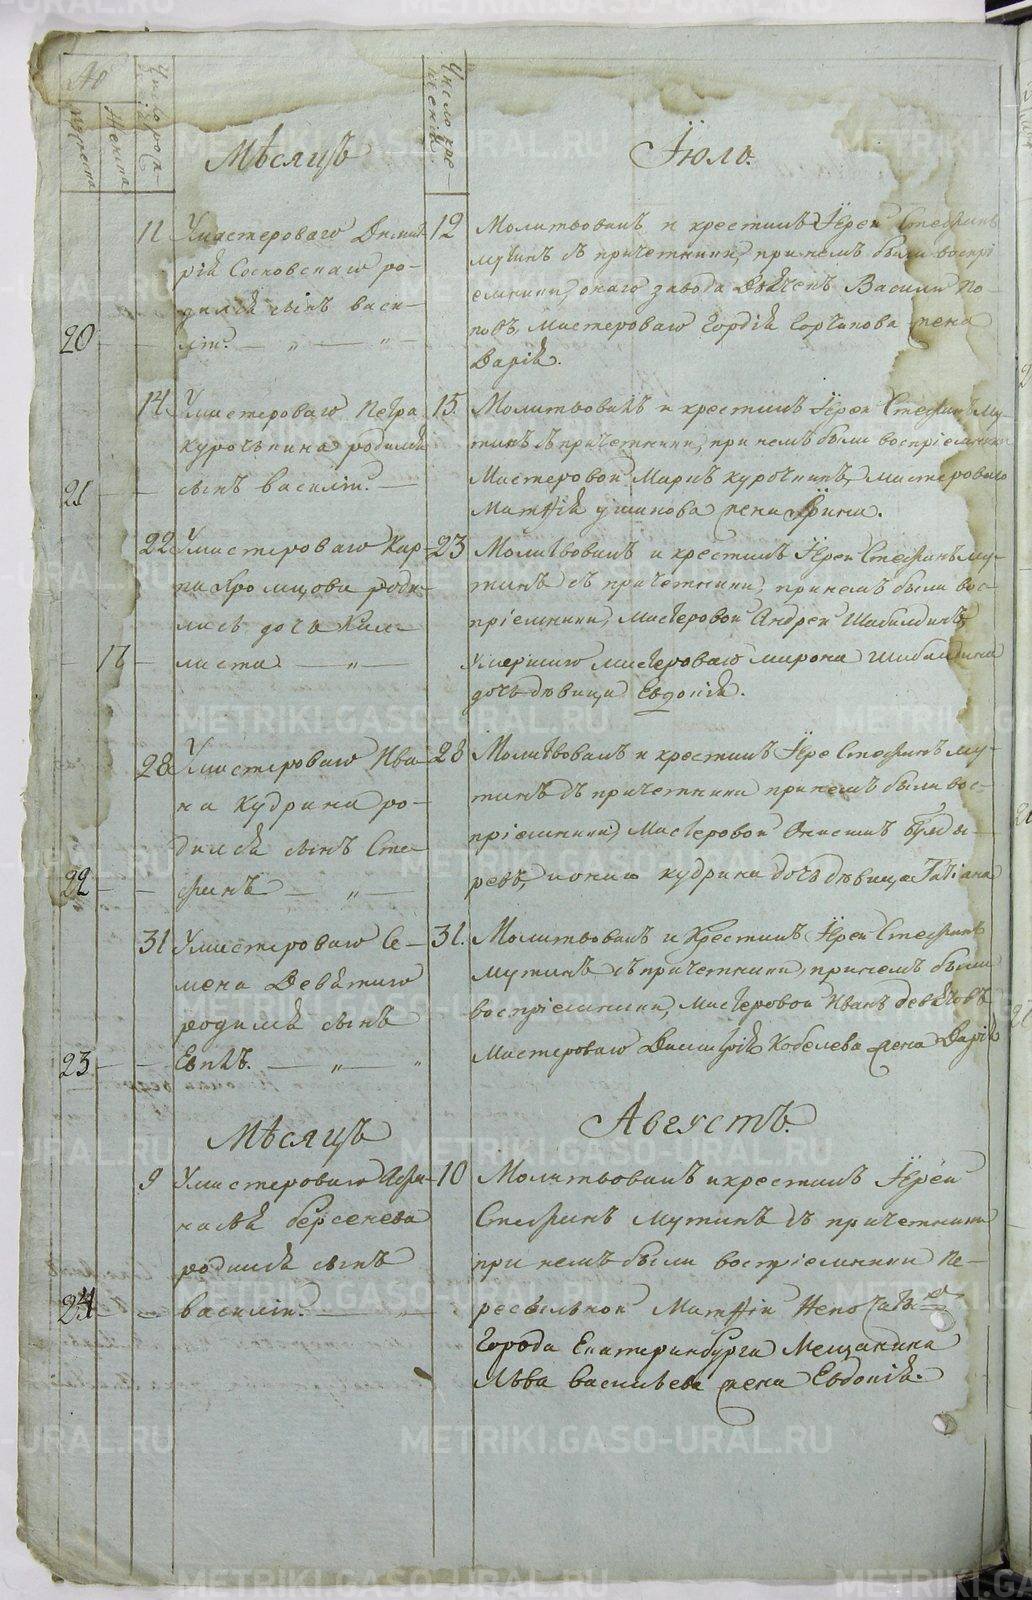 №
мужеска
женска
Число рож-
Число кре-
щенiя
Мѣсяцъ
Їюль.
11
Умастероваго Дмит-
рiя Сосновскаго ро-
дился сынъ васи-
20
лiи.
12
Молитвовалъ и крестилъ Їерей Стефанъ
мутинъ съ причетники, принемъ были воспрi
емники, онаго завода Василiи По-
повъ, Мастероваго Гордiя Горчакова жена
Дарiя.
14
Умастероваго Петра
курочкина родился
21
сынъ василiи.
15.
Молитвовалъ и крестилъ Їерей Стефанъ Му-
тинъ съ причетники, при немъ были воспрiемники
Мастеровой Маркъ курочкинъ, мастероваго
Матѳiя ушакова жена Їрина.
22
Умастероваго Кар-
па Хромцова роди-
лась дочь Кали-
18
листа.
23
Молитвовалъ и крестилъ Їерей Стефанъ му-
тинъ съ причетники, принемъ были вос-
прiемники, Мастеровой Андреи Шабалдинъ,
умершаго мастероваго мирона Шабалдина
дочь дѣвица Евдокiя.
28
Умастероваго Ива-
на кудрина ро-
дился сынъ Сте-
22
фанъ
28
Молитвовалъ и крестилъ Їере Стефанъ му-
тинъ съ причетники принемъ были вос-
прiемники, Мастеровой Анисимъ Булды-
ревъ, кудрина дочь дѣвица Татiана
31
Умастероваго Се-
мена Девятаго
родился сынъ
23
Епъ.
31.
Молитвовалъ и крестилъ Їерей Стефанъ
мутинъ съ причетники, принемъ были
воспрiемники, Мастеровой Иванъ девятовъ
Мастероваго Дмитрiя Кобелева жена Дарiя
Мѣсяцъ
Августъ.
9
Умастероваго Афа-
насья берсенева
родился сынъ
24
василiи.
10
Молитвовалъ икрестилъ Їерей
Стефанъ мутинъ съ причетники
при немъ были воспрiемники Пе-
ресыльной Матѳiи
Города Екатеринбурга Мещанина
Льва васильева жена Евдокiя.
METRIKI.GASO-URAL.RU